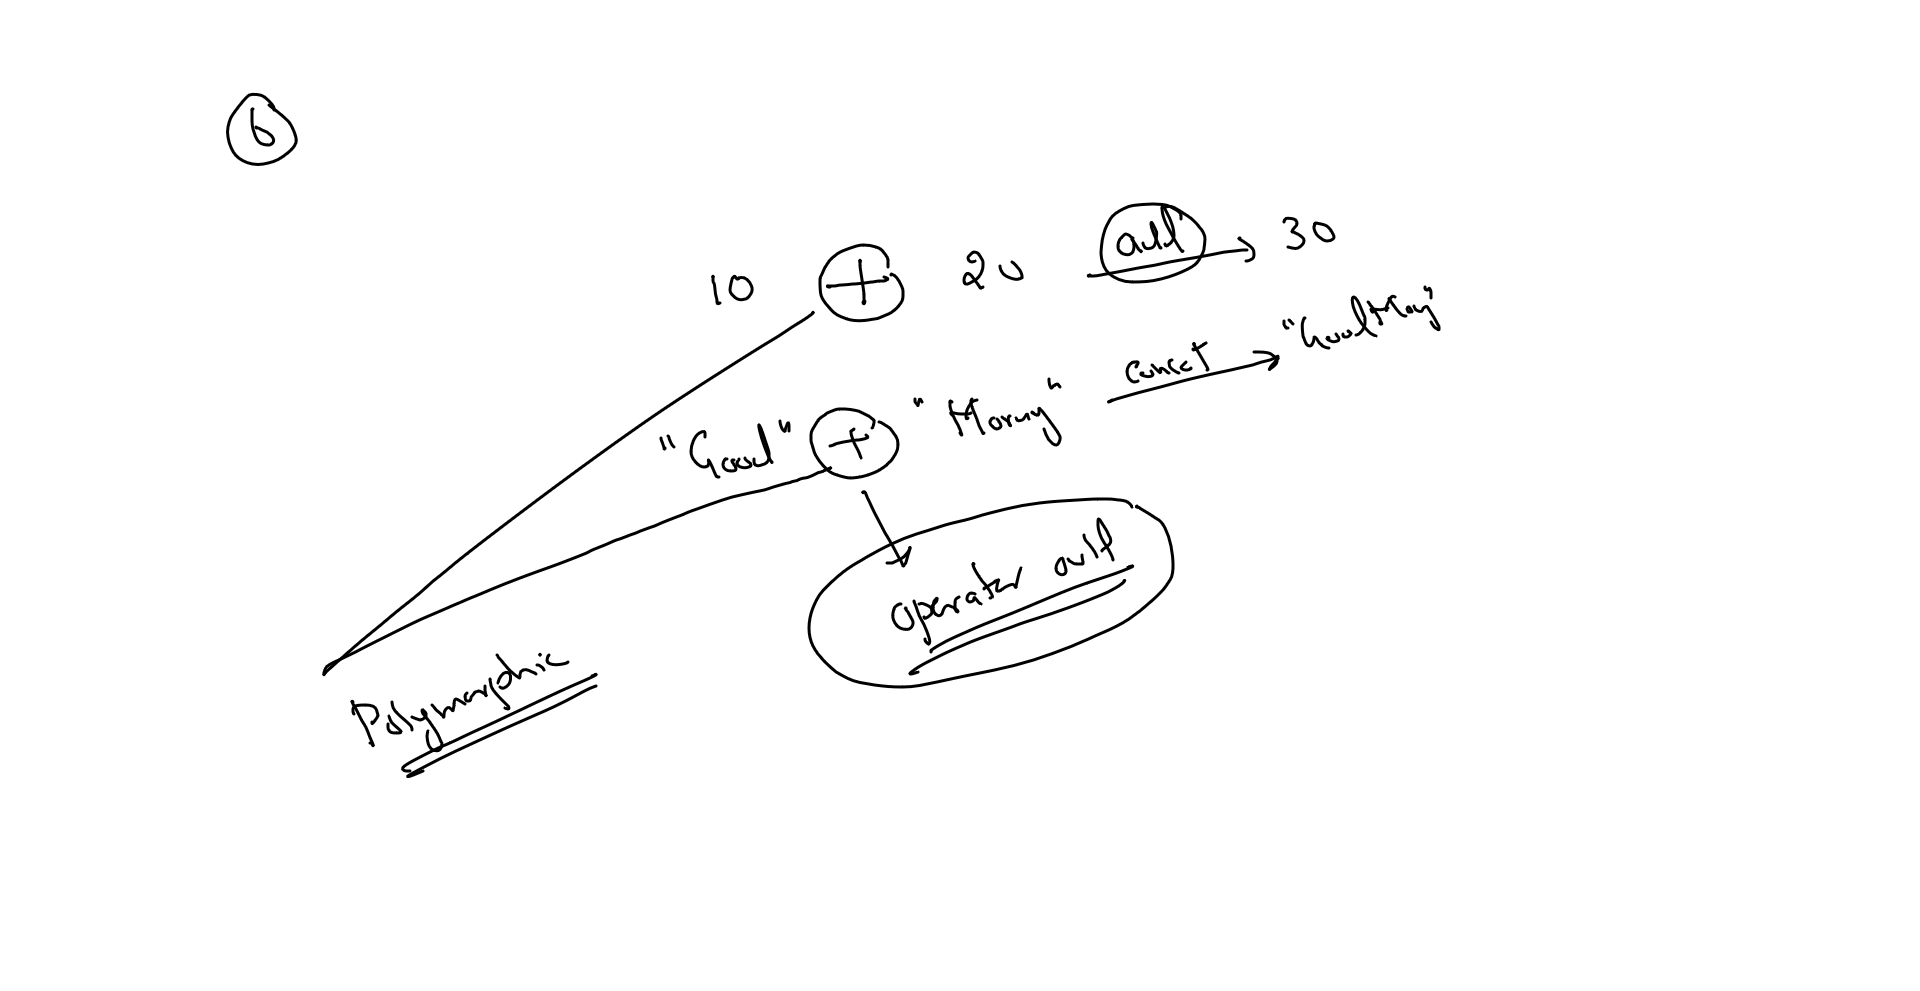 6
10 + 20 add 30
"Good" + "Morning" concat "Good Mornig"
operator
Polymorphic